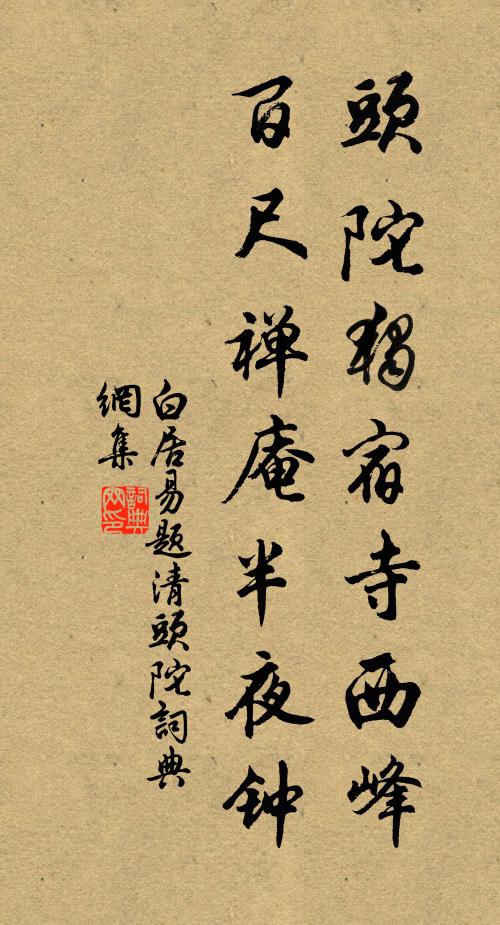 頭陀獨宿寺西峰
百尺禅庵半夜钟
白居易题清頭陀詞典
網集
詞典
网印